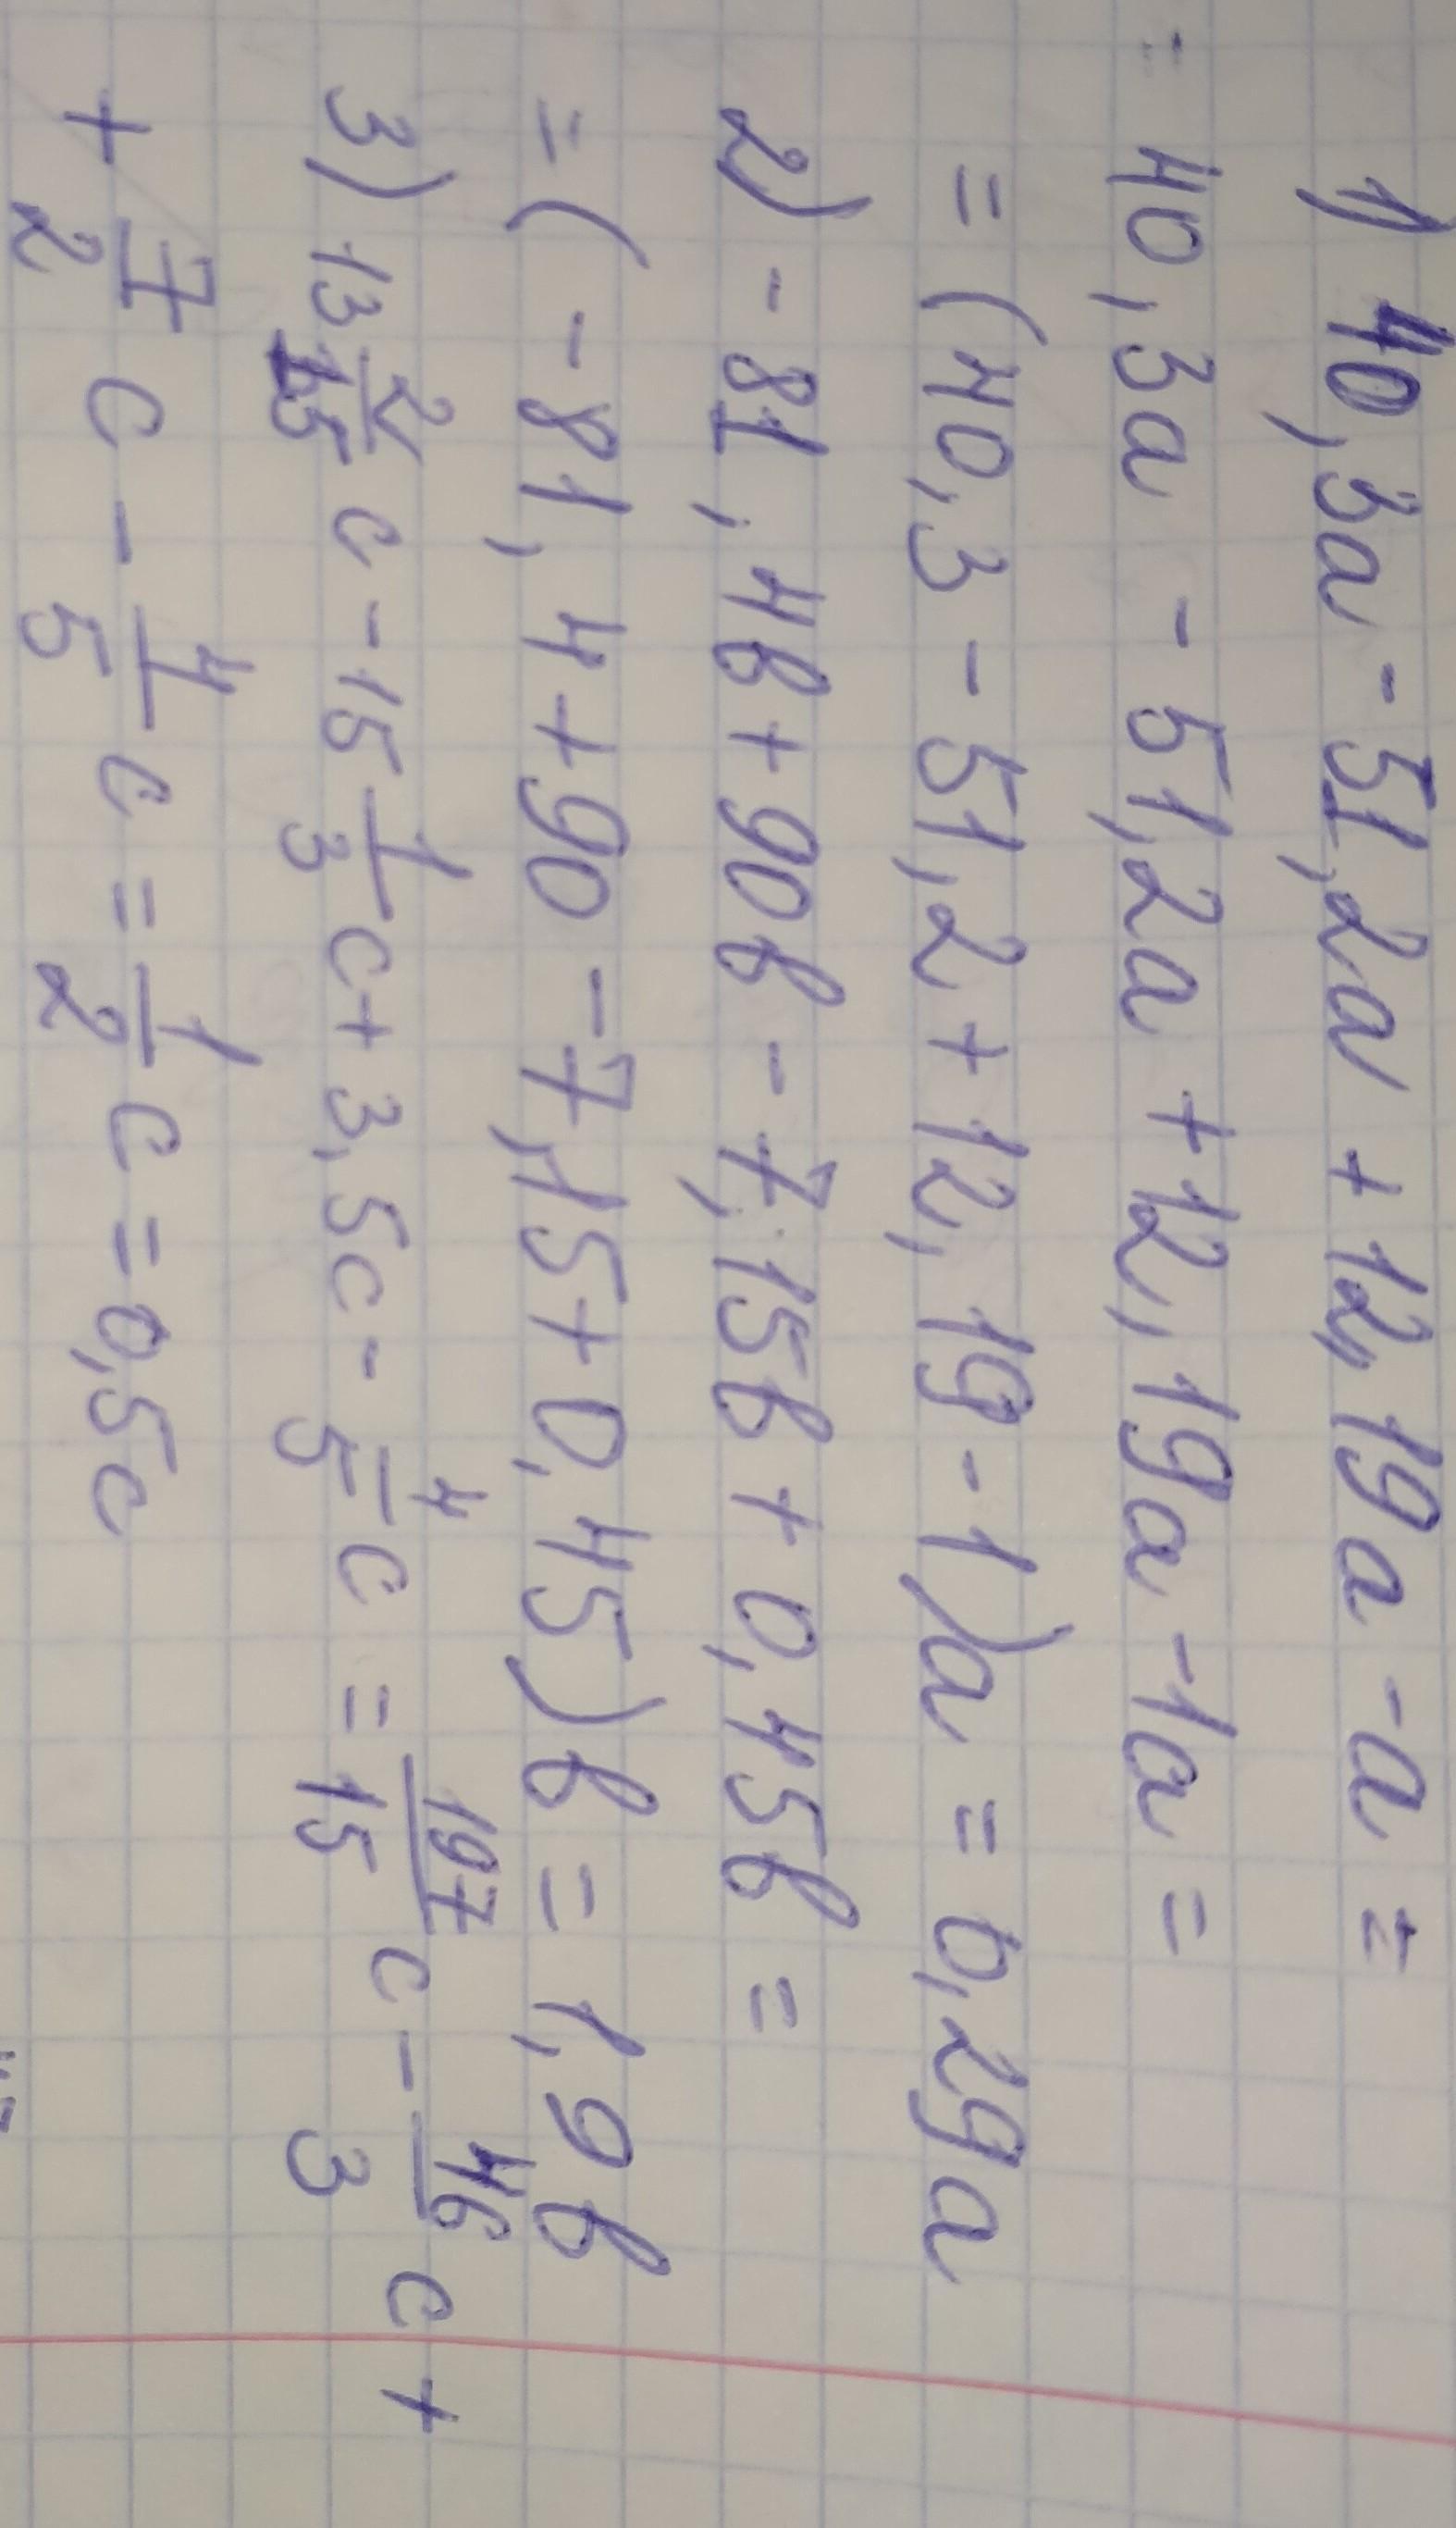 1) 40,3a - 51,2a + 12,19a - a =
= 40,3a - 51,2a + 12,19a - 1a =
= (40,3 - 51,2 + 12,19 - 1)a = 0,29a
2) - 81,4в + 90в - 7,15в + 0,45в =
= (-81,4 + 90 - 7,15 + 0,45)в = 1,9в
3) 13 2/15 c - 15 1/3 c + 3,5c - 4/5 c = 197/15 c - 46/3 c +
+ 7/2 c - 4/5 c = 1/2 c = 0,5c